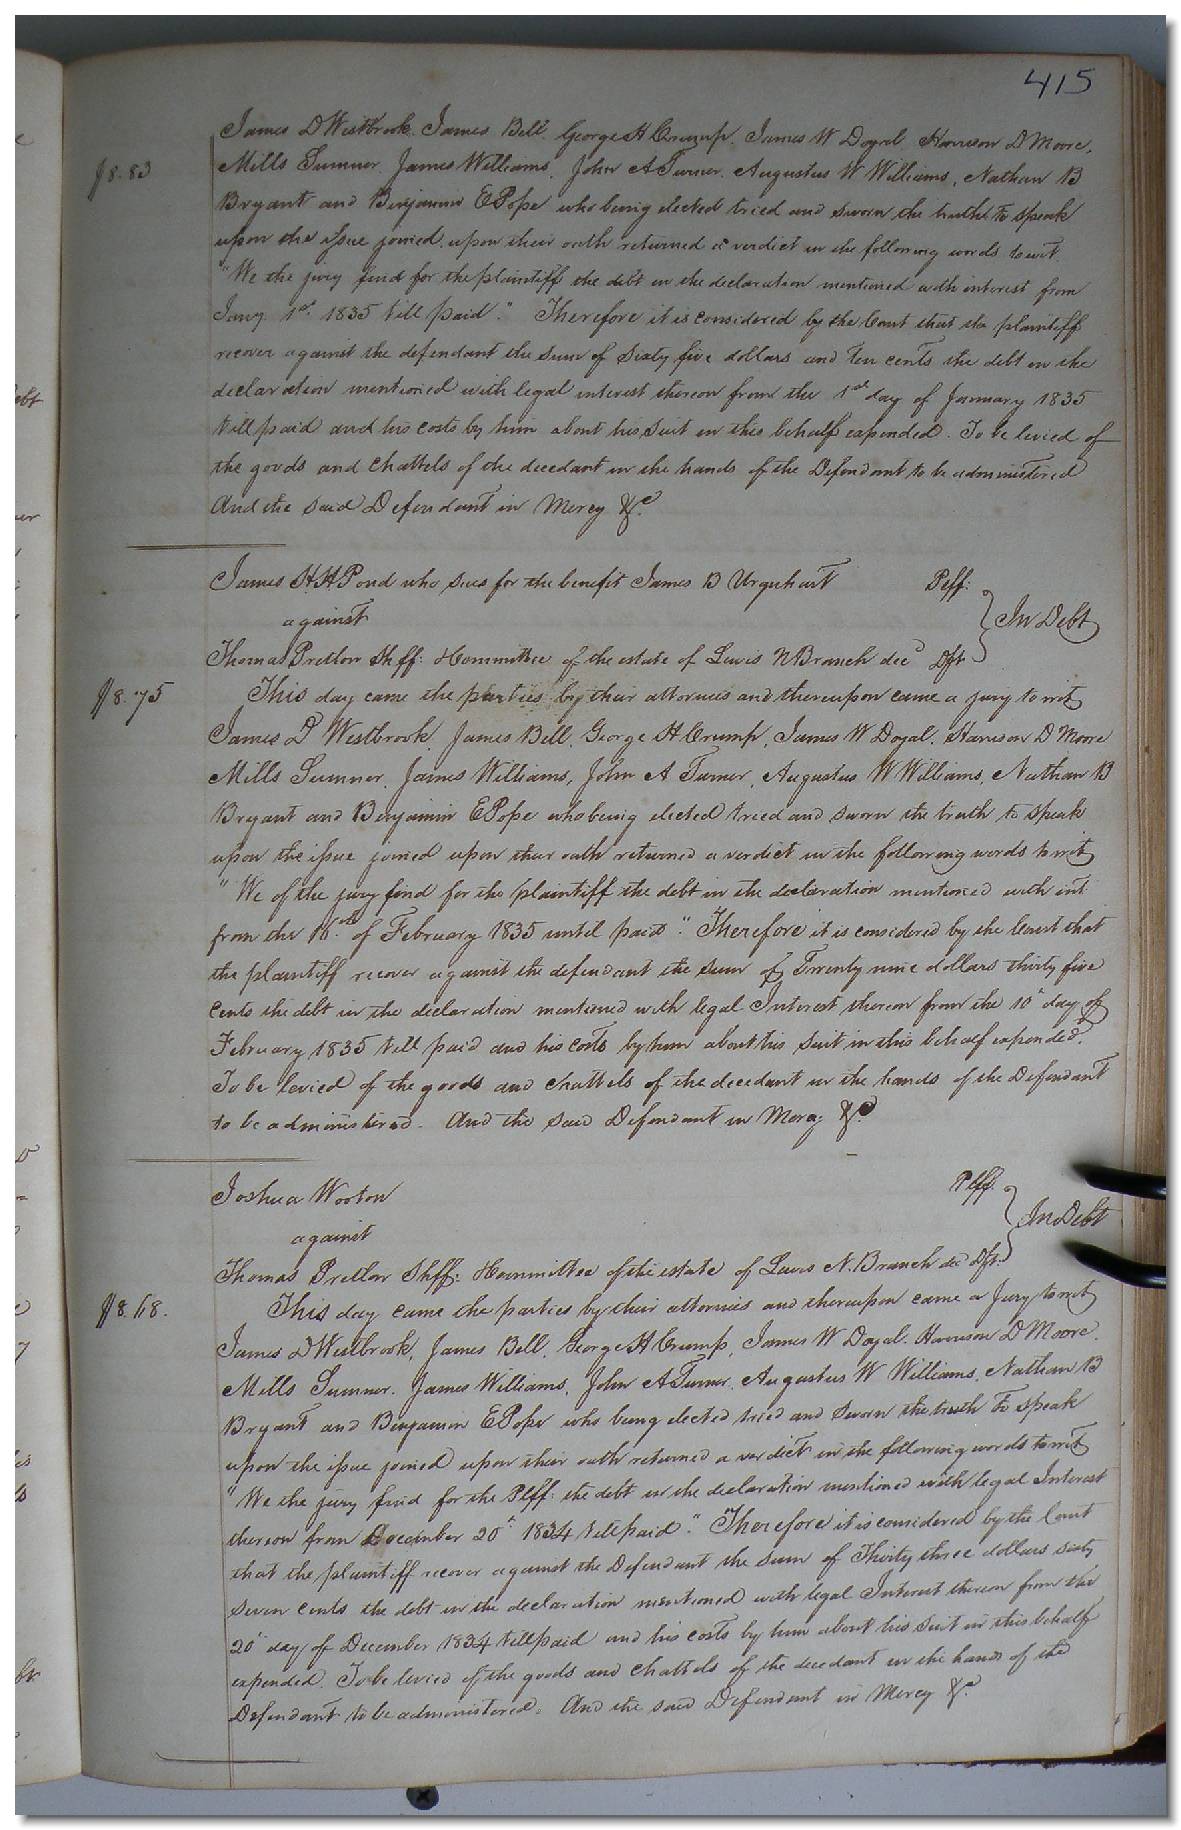 415
James D Westbrook. James Bell. George H Crump. James W Doyal. Harrison D Moore.
$8.83
Mills Sumner. James Williams. John A Turner. Augustus W Williams. Nathan B
Bryant and Benjamin E Pope who being elected tried and sworn the truth to speak
upon the issue joined upon their oath returned a verdict in the following words to wit
"We the jury find for the plaintiff the debt in the declaration mentioned with interest from
Jany 1st 1835 till paid." Therefore it is considered by the Court that the plaintiff
recover against the defendant the sum of Sixty five dollars and ten cents the debt in the
declaration mentioned with legal interest thereon from the 1st day of January 1835
till paid and his costs by him about his suit in this behalf expended. To be levied of
the goods and chattels of the decedant in the hands of the Defendant to be administered
And the said Defendant in Mercy &c.
James H.H Pond who sues for the benefit James B Urquhart Plff:
against In Debt
Thomas Pretlow Shff: & Committee of the estate of Lewis N Branch decd Dft
$8.75
This day came the parties by their attornies and thereupon came a jury to wit
James D Westbrook. James Bell. George H Crump. James W Doyal. Harrison D Moore
Mills Sumner. James Williams. John A Turner. Augustus W Williams. Nathan B
Bryant and Benjamin E Pope who being elected tried and sworn the truth to speak
upon the issue joined upon their oath returned a verdict in the following words to wit
"We of the jury find for the plaintiff the debt in the declaration mentioned with int
from the of February 1835 until paid". Therefore it is considered by the Court that
the plaintiff recover against the defendant the sum of Twenty nine dollars thirty five
cents the debt in the declaration mentioned with legal Interest thereon from the 10th day of
February 1835 till paid and his costs by him about his suit in this behalf expended.
To be levied of the goods and chattels of the decedant in the hands of the Defendant
to be administered. And the said Defendant in Mercy &c
Joshua Wooton Plff.
against In Debt
Thomas Pretlow Shff: & Committee of the estate of Lewis N. Branch dec Dft.
$8.68.
This day came the parties by their attornies and thereupon came a Jury to wit
James D Westbrook, James Bell. George H Crump, James W Doyal. Harrison D Moore.
Mills Sumner. James Williams, John A Turner. Augustus W Williams. Nathan B
Bryant and Benjamin E Pope who being elected tried and sworn the truth to speak
upon the issue joined upon their oath returned a verdict in the following words to wit
"We the jury find for the Plff: the debt in the declaration mentioned with legal Interest
thereon from December 20th 1834 till paid". Therefore it is considered by the Court
that the plaintiff recover against the Defendant the sum of Thirty three dollars sixty
seven cents the debt in the declaration mentioned with legal Interest thereon from the
20th day of December 1834 till paid and his costs by him about his suit in this behalf
expended. To be levied of the goods and chattels of the decedant in the hands of the
Defendant to be administered. And the said Defendant in Mercy &c.